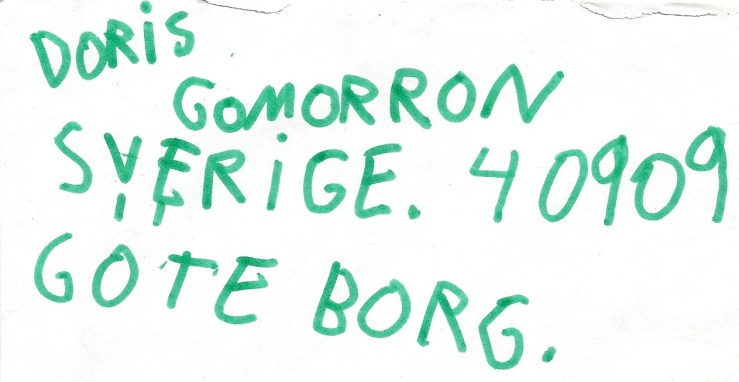 DORiS
GOMORRON
SVERiGE. 40909
GOTE BORG.